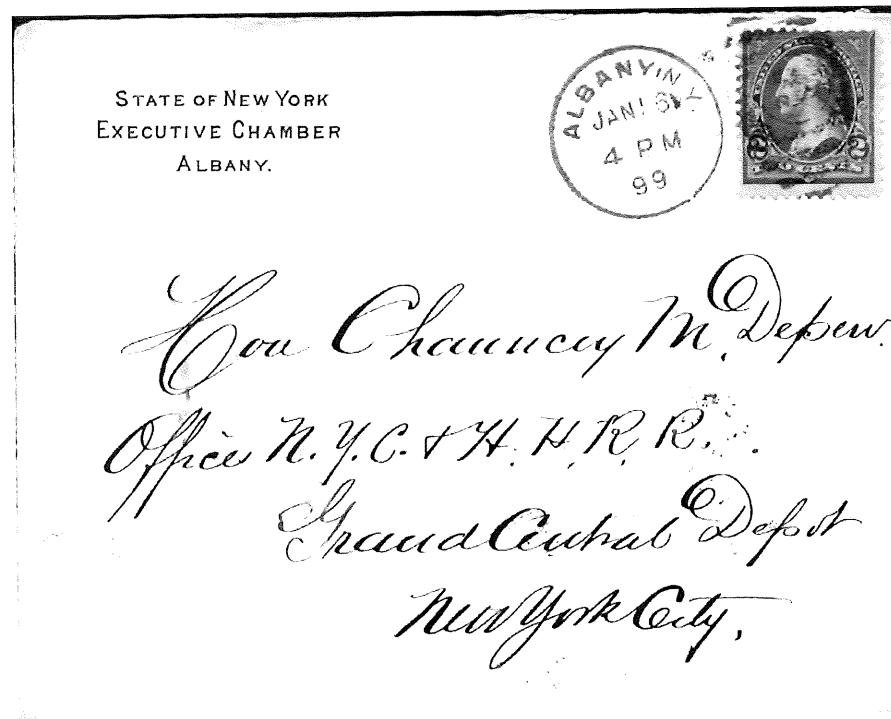 STATE OF NEW YORK
EXECUTIVE CHAMBER
ALBANY.
ALBANY, N.Y.
JAN 16
4 PM
99
2 2
Hon Chauncey M. Depew.
Office N. Y. C. & H. H. R. R.
Grand Central Depot
New York City.